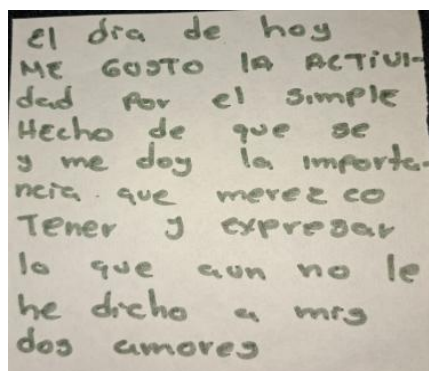 el dia de hoy
ME GUSTO lA ACTiVi-
dad Por el SimPlE
HEcho de que se
y me doy la importa-
ncia que merez co
TEner y expresar
lo que aun no le
he dicho a mis
dos amores